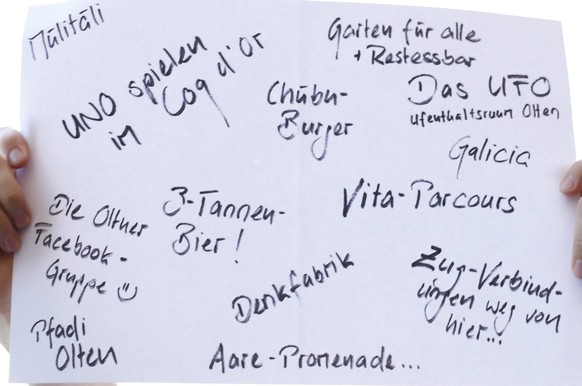 Mülitäli
UNO spielen
im Coq d'Or
Garten für alle
+ Restessbar
Chübu-
Burger
Das UFO
ufenthaltsruum Olten
Galicia
Die Oltner
Facebook-
Gruppe ☺
3-Tannen-
Bier!
Vita-Parcours
Denkfabrik
Zug-Verbind-
ungen weg von
hier...
Pfadi
Olten
Aare-Promenade...